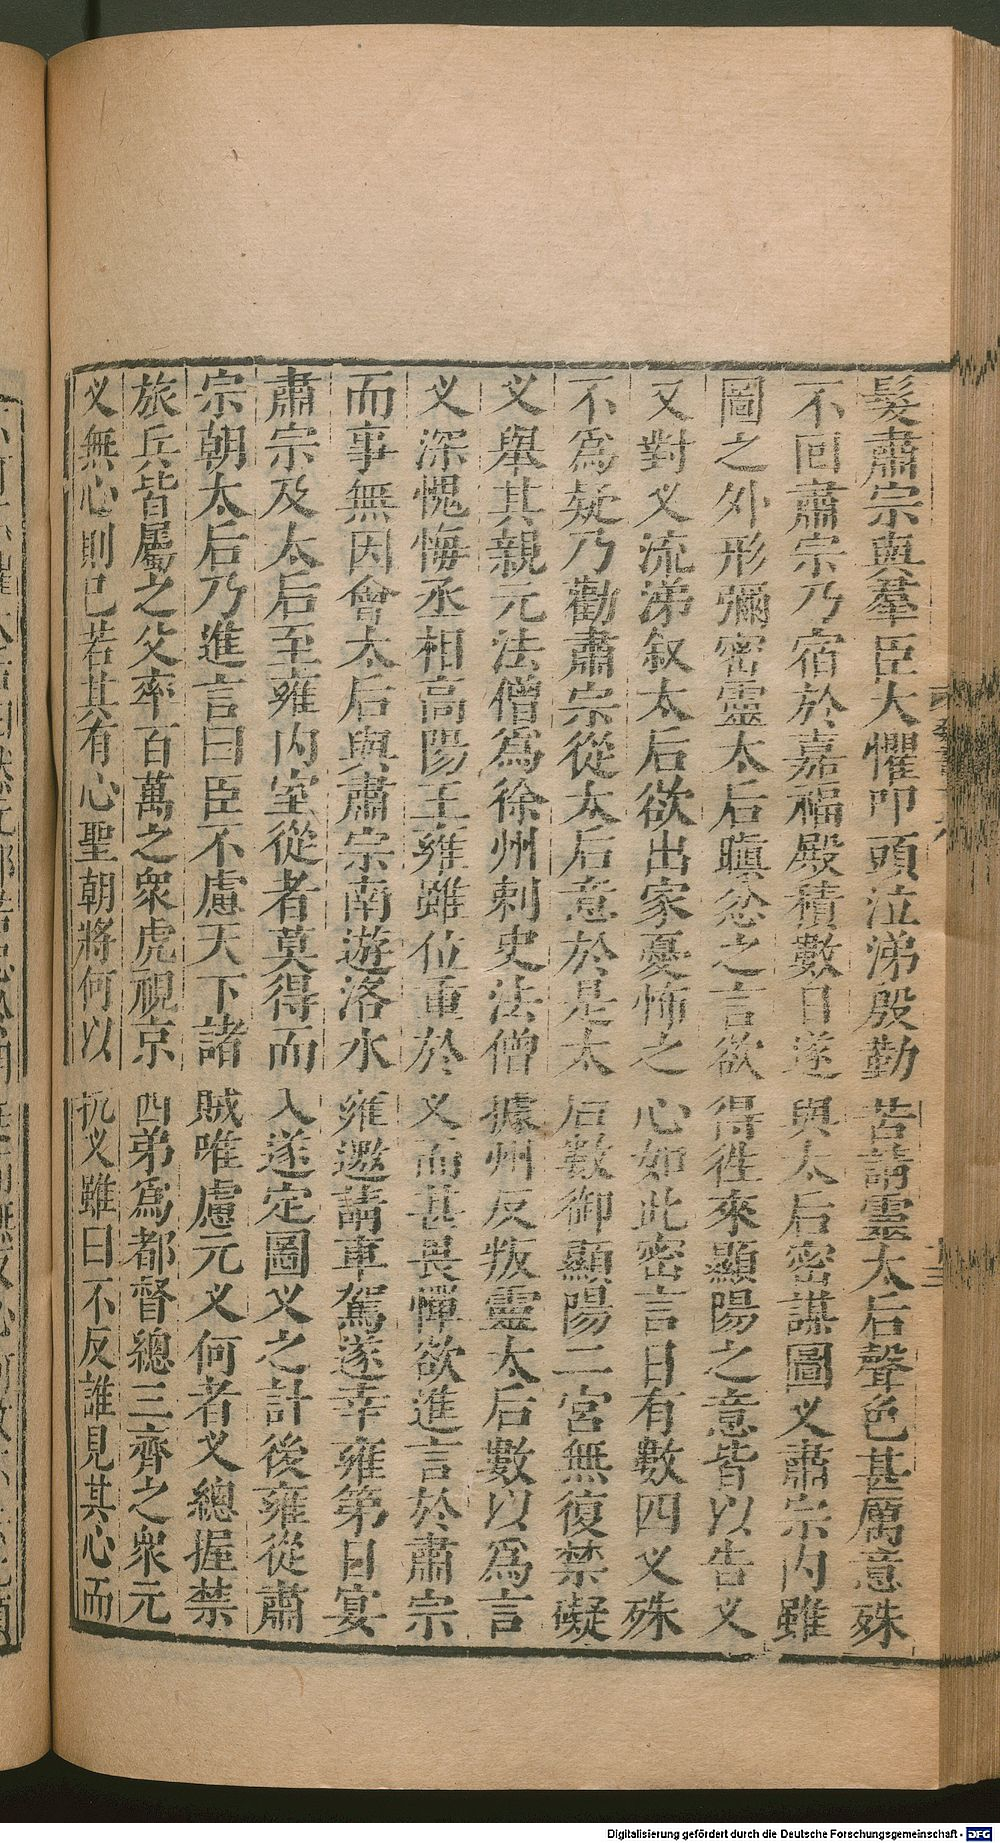 髮肅宗與羣臣大懼叩頭泣涕殷勤苦請靈太后聲色甚厲意殊
不回肅宗乃宿於嘉福殿積數日遂與太后密謀圖义肅宗內雖
圖之外形彌密靈太后瞋忿之言欲得往來顯陽之意皆以告义
又對义流涕叙太后欲出家憂怖之心如此密言日有數四义殊
不爲疑乃勸肅宗從太后意於是太后數御顯陽二宮無復禁礙
义舉其親元法僧爲徐州刺史法僧據州反叛靈太后數以爲言
义深愧悔丞相高陽王雍雖位重於义而甚畏憚欲進言於肅宗
而事無因會太后與肅宗南遊洛水雍邀請車駕遂幸雍第日宴
肅宗及太后至雍內室從者莫得而入遂定圖义之計後雍從肅
宗朝太后乃進言曰臣不慮天下諸賊唯慮元义何者义總握禁
旅兵皆屬之父率百萬之衆虎視京西弟爲都督總三齊之衆元
义無心則已若其有心聖朝將何以抗义雖曰不反誰見其心而
Digitalisierung gefördert durch die Deutsche Forschungsgemeinschaft - DFG